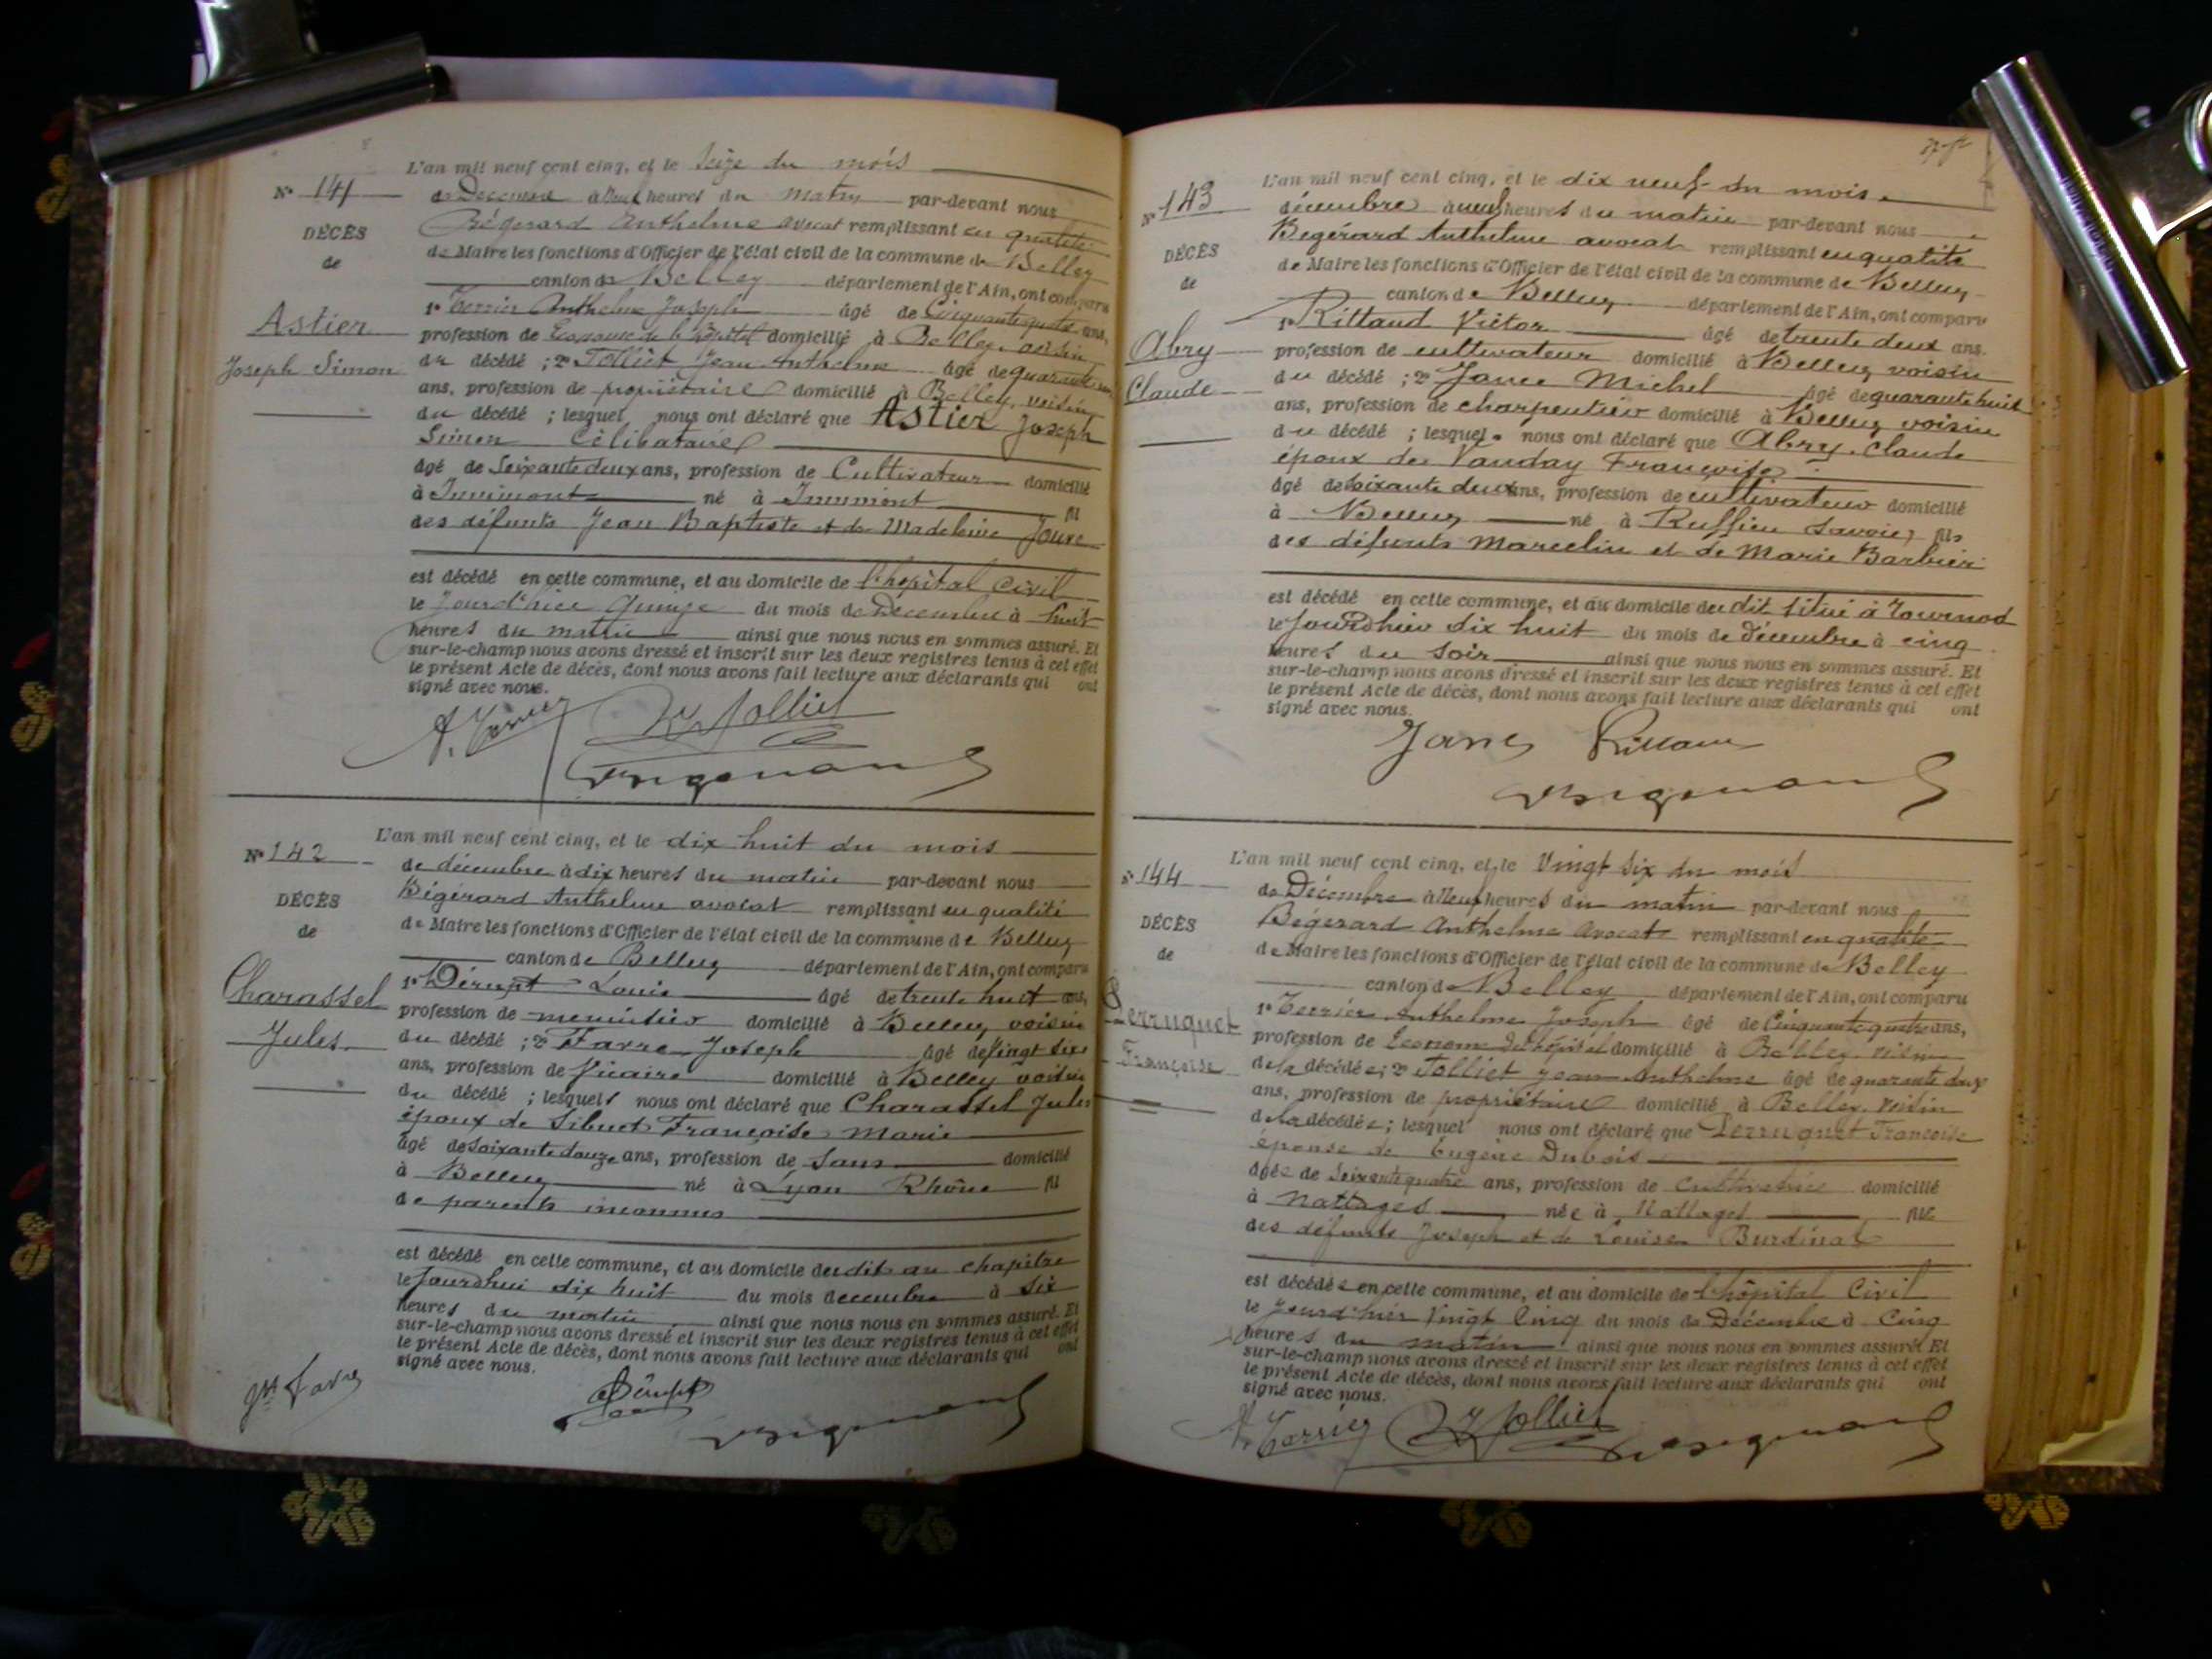 L'an mil neuf cent cinq, et le seize du mois
N° 141
de Décembre à Neuf heures du matin par-devant nous
Bégerard Anthelme avocat remplissant en qualité
DÉCÈS
de Maire les fonctions d'Officier de l'état civil de la commune de Belley
de
canton de Belley département de l'Ain, ont comparu
1° Terrier Anthelme Joseph âgé de Cinquante quatre ans,
Astier
profession de Econome de l'hôpital domicilié à Belley, voisin
Joseph Simon
du décédé ; 2° Tolliet Jean Anthelme âgé de quarante
ans, profession de propriétaire domicilié à Belley, voisin
du décédé ; lesquel nous ont déclaré que Astier Joseph
Simon Célibataire
âgé de Soixante deux ans, profession de Cultivateur domicilié
à Innimont né à Innimont fil
des défunts Jean Baptiste et de Madeleine Jouve
est décédé en cette commune, et au domicile de l'hôpital Civil
le jourd'hier Quinze du mois de Décembre à huit
heures du matin ainsi que nous nous en sommes assuré. Et
sur-le-champ nous avons dressé et inscrit sur les deux registres tenus à cet effet
le présent Acte de décès, dont nous avons fait lecture aux déclarants qui ont
signé avec nous.
A. Terrier Tolliet
L'an mil neuf cent cinq, et le dix huit du mois
N° 142
de décembre à dix heures du matin par-devant nous
Bégérard Anthelme avocat remplissant en qualité
DÉCÈS
de Maire les fonctions d'Officier de l'état civil de la commune de Belley
de
canton de Belley département de l'Ain, ont comparu
Charassel
1° Dérupt Louis âgé de trente huit ans,
profession de menuisier domicilié à Belley voisin
Jules
du décédé ; 2° Favre Joseph âgé de Vingt six
ans, profession de Vicaire domicilié à Belley voisin
du décédé ; lesquels nous ont déclaré que Charassel Jules
époux de Sibuet Françoise Marie
âgé de soixante douze ans, profession de Sans domicilié
à Belley né à Lyon Rhône fil
de parents inconnus
est décédé en cette commune, et au domicile du dit au chapitre
le jourdhui dix huit du mois decembre à six
heures du matin ainsi que nous nous en sommes assuré. Et
sur-le-champ nous avons dressé et inscrit sur les deux registres tenus à cet effet
le présent Acte de décès, dont nous avons fait lecture aux déclarants qui ont
signé avec nous.
Jh Favre Dérupt
L'an mil neuf cent cinq, et le dix neuf du mois
N° 143
décembre à neuf heures du matin par-devant nous
Begérard Anthelme avocat remplissant en qualité
DÉCÈS
de Maire les fonctions d'Officier de l'état civil de la commune de Belley
de
canton de Belley département de l'Ain, ont comparu
1° Rittaud Victor âgé de trente deux ans.
Abry
profession de cultivateur domicilié à Belley voisin
Claude
du décédé ; 2° Michel âgé de quarante huit
ans, profession de charpentier domicilié à Belley voisin
du décédé ; lesquel nous ont déclaré que Abry Claude
époux de Vauday Françoise
âgé de soixante deux ans, profession de cultivateur domicilié
à Belley né à Ruffieu Savoie, fils
des défunts Marcelin et de Marie Barbier
est décédé en cette commune, et au domicile du dit situé à
le jourdhier dix huit du mois de décembre à cinq
heures du soir ainsi que nous nous en sommes assuré. Et
sur-le-champ nous avons dressé et inscrit sur les deux registres tenus à cet effet
le présent Acte de décès, dont nous avons fait lecture aux déclarants qui ont
signé avec nous.
L'an mil neuf cent cinq, et le Vingt six du mois
N° 144
de Décembre à Neuf heures du matin par-devant nous
DÉCÈS
Bégerard Anthelme Avocat remplissant en qualité
de
de Maire les fonctions d'Officier de l'état civil de la commune de Belley
canton de Belley département de l'Ain, ont comparu
Perruquet
1° Terrier Anthelme Joseph âgé de Cinquante quatre ans,
profession de Econome de l'hôpital domicilié à Belley, voisin
Françoise
de la décédée ; 2° Tolliet Jean Anthelme âgé de quarante deux
ans, profession de propriétaire domicilié à Belley, voisin
de la décédée ; lesquel nous ont déclaré que Perruquet Françoise
épouse de Eugène Dubois
âgée de Soixante quatre ans, profession de Cultivatrice domicilié
à Nattages née à Nattages fille
des défunts Joseph et de Louise Burdinat
est décédée en cette commune, et au domicile de l'hôpital Civil
le jourd'hier Vingt Cinq du mois de Décembre à Cinq
heures du matin ainsi que nous nous en sommes assuré. Et
sur-le-champ nous avons dressé et inscrit sur les deux registres tenus à cet effet
le présent Acte de décès, dont nous avons fait lecture aux déclarants qui ont
signé avec nous.
A. Terrier Tolliet